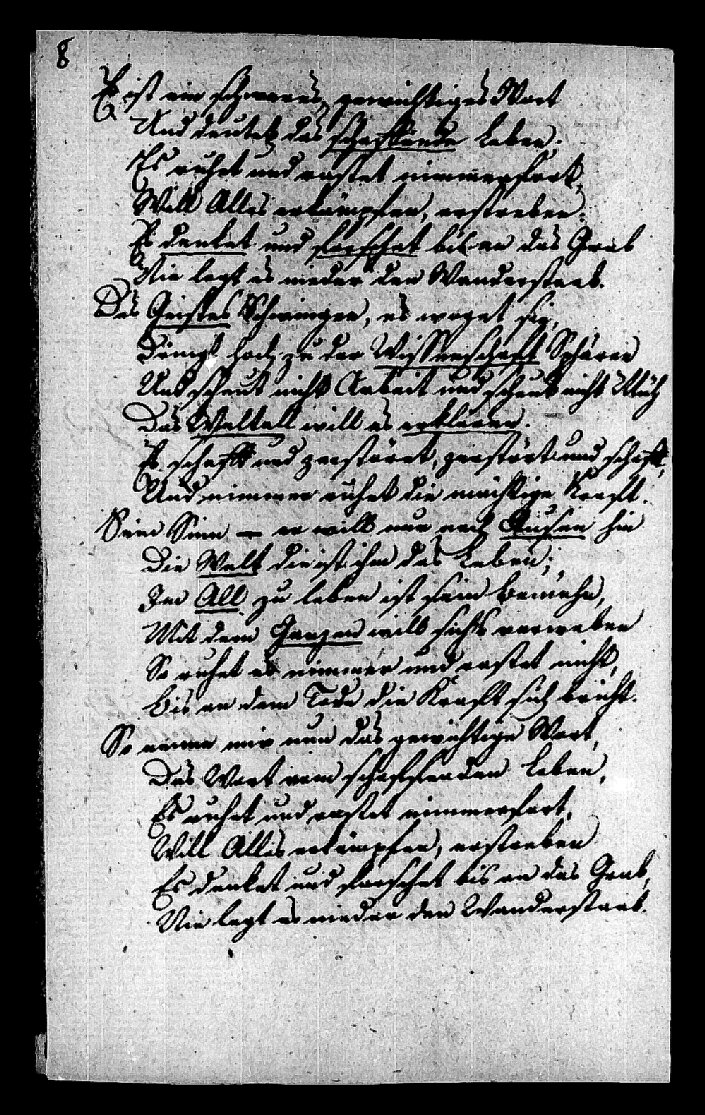 8
Es ist ein schweres, gewichtiges Wort
Und deutet das schaffende Leben;
Es ruhet und rastet nimmerfort,
Will Alles erkämpfen, erstreben.
Es denket und forschet bis an das Grab
Nie legt es nieder den Wanderstaab.
Des Geistes Schwingen, es woget sie,
Dringt hoch zu der Wissenschaft Sphären
Und scheut nicht Arbeit und scheut nicht Müh
Das Weltall will es erklären.
Es schafft und zerstöret, zerstört und schafft,
Und nimmer ruhet die mächtige Kraft.
Sein Sinn – er will nur nach Außen hin
Die Welt die ist ihm das Leben;
Im All zu leben ist sein Bemühn,
Mit dem Ganzen will sichs verweben
So ruhet es nimmer und rastet nicht,
Bis an dem Tode die Kraft sich bricht.
So nenne mir nun das gewichtige Wort,
Das Wort vom schaffenden Leben,
Es ruhet und rastet nimmerfort,
Will Alles erkämpfen, erstreben
Es denket und forschet bis an das Grab,
Nie legt es nieder den Wanderstaab.